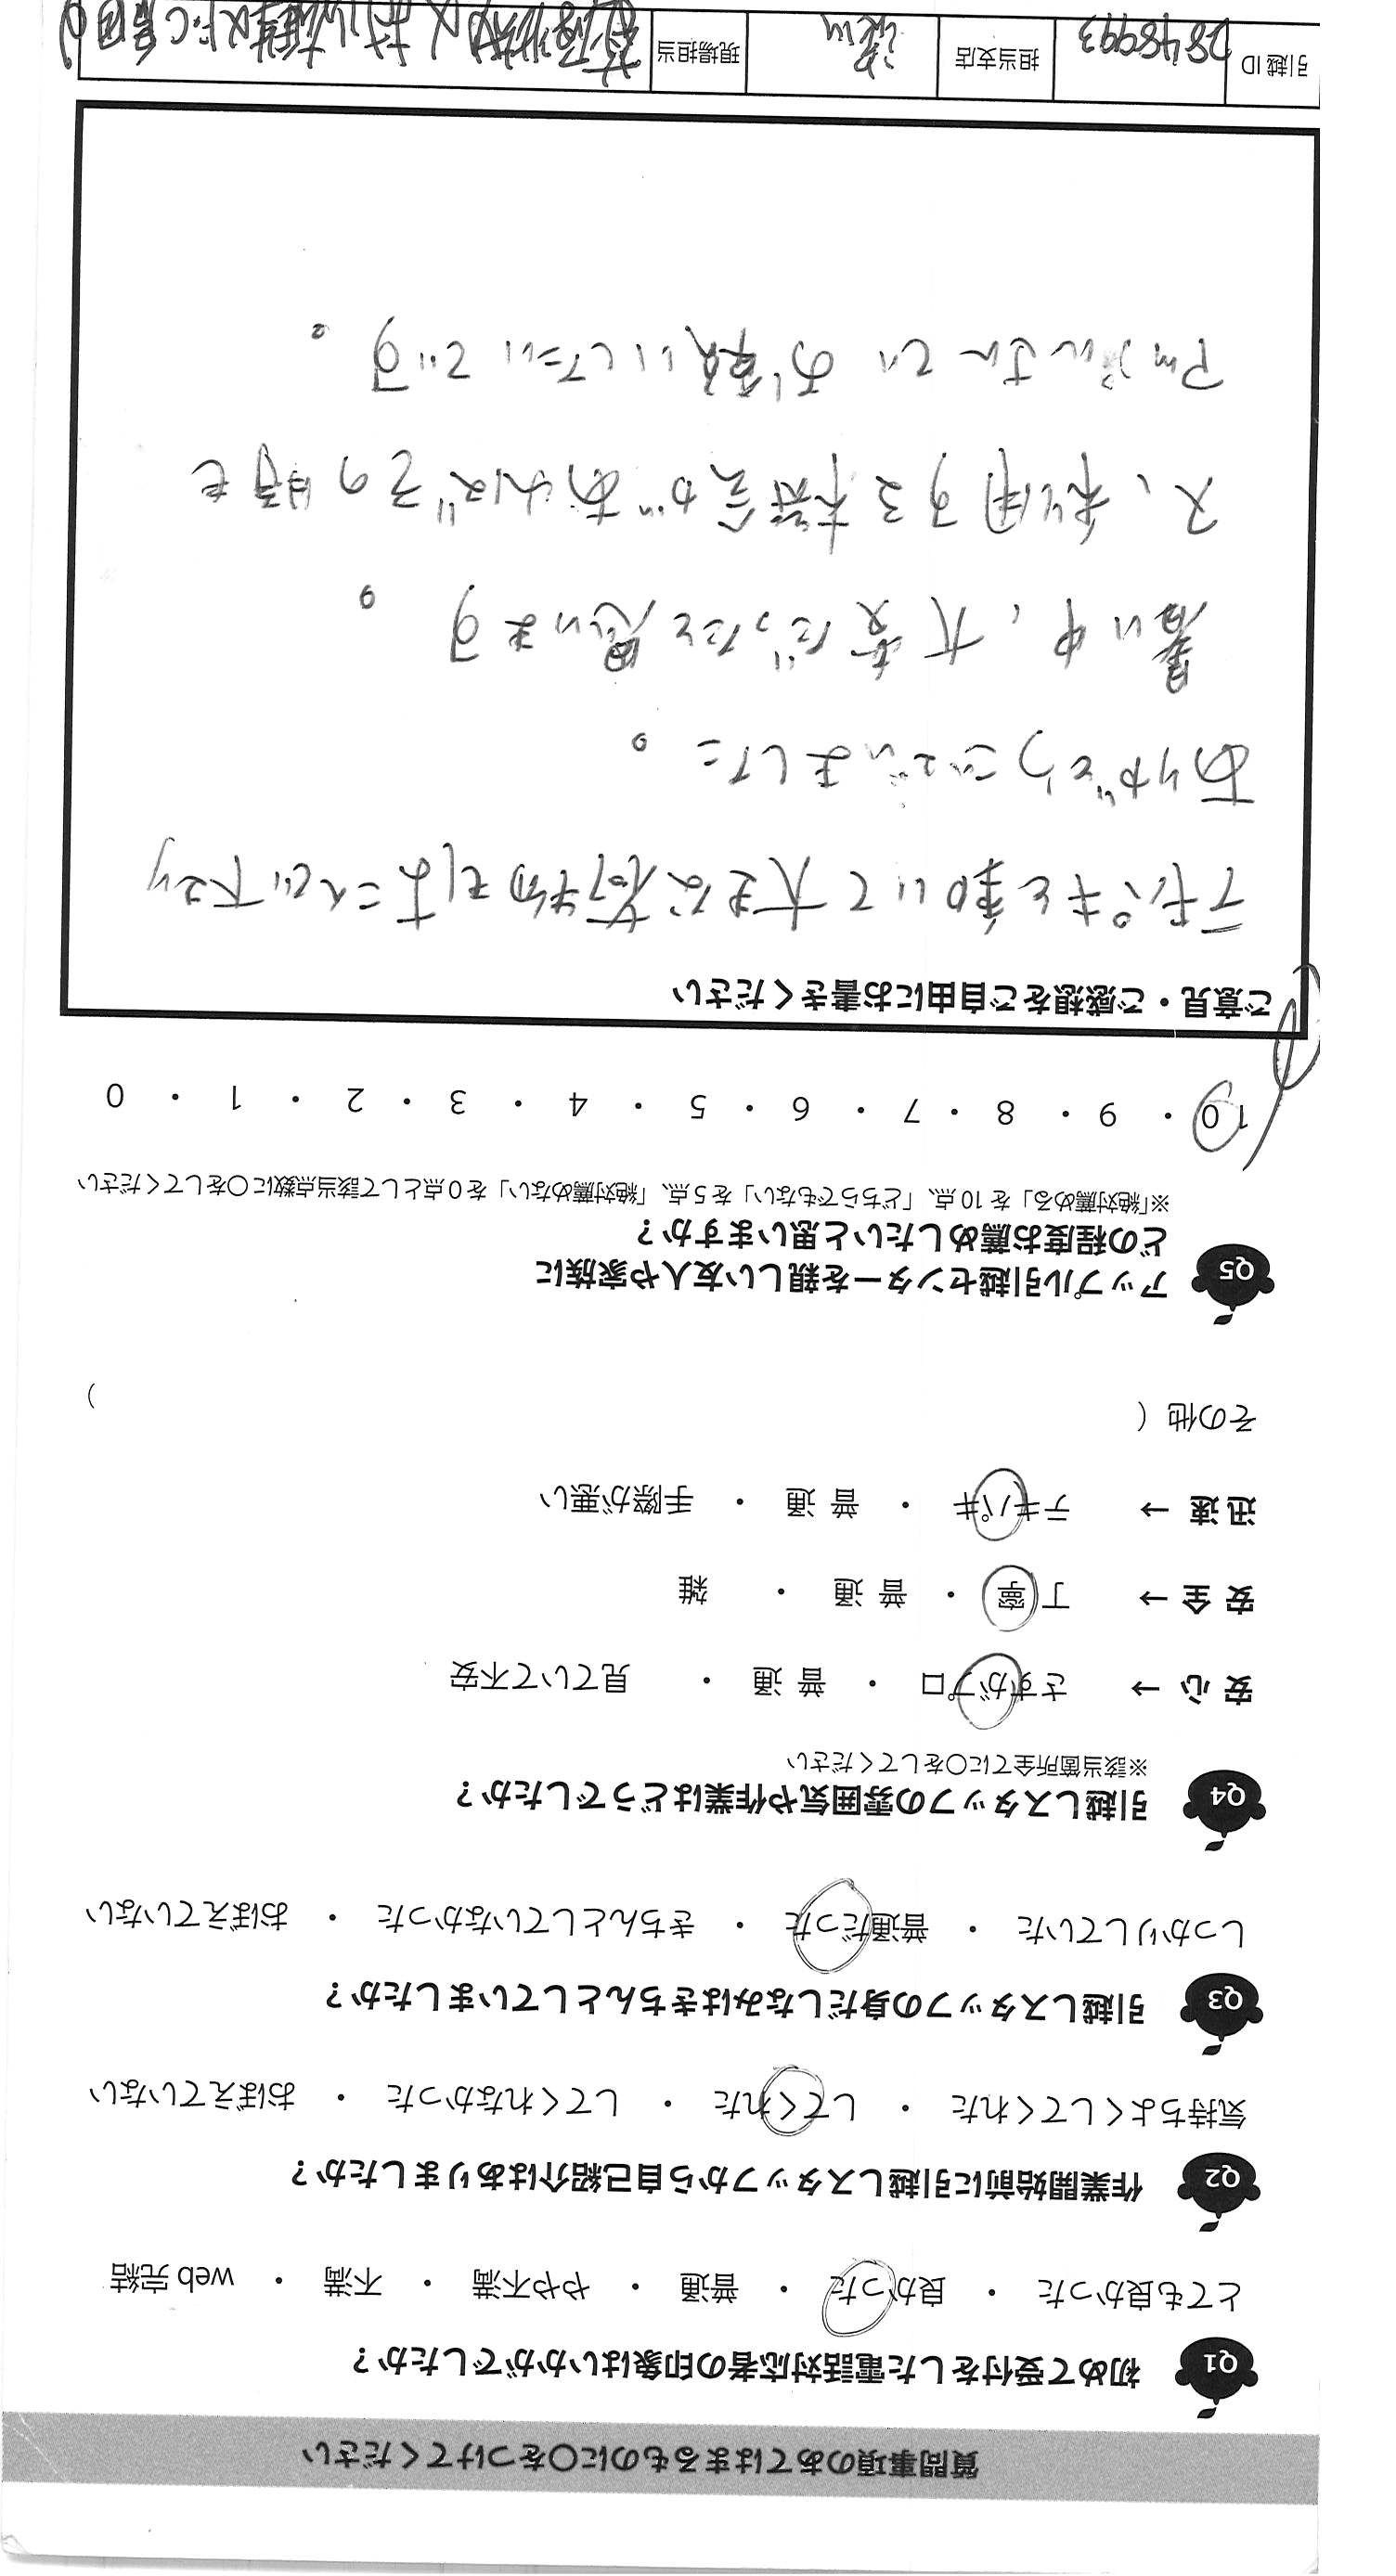 質問事項のあてはまるものに〇をつけてください
Q1 初めて受付をした電話対応者の印象はいかがでしたか？
とても良かった ・ 良かった ・ 普通 ・ やや不満 ・ 不満 ・ web 完結
Q2 作業開始前に引越しスタッフから自己紹介はありましたか？
気持ちよくしてくれた ・ してくれた ・ してくれなかった ・ おぼえていない
Q3 引越しスタッフの身だしなみはきちんとしていましたか？
しっかりしていた ・ 普通だった ・ きちんとしていなかった ・ おぼえていない
Q4 引越しスタッフの雰囲気や作業はどうでしたか？
※該当箇所全てに〇をしてください
安 心 → さすがプロ ・ 普 通 ・ 見ていて不安
安 全 → 丁 寧 ・ 普 通 ・ 雑
迅 速 → テキパキ ・ 普 通 ・ 手際が悪い
その他（ ）
Q5 アップル引越センターを親しい友人や家族に
どの程度お薦めしたいと思いますか？
※「絶対薦める」を 10 点、「どちらでもない」を 5 点、「絶対薦めない」を 0 点として該当点数に〇をしてください
10 ・ 9 ・ 8 ・ 7 ・ 6 ・ 5 ・ 4 ・ 3 ・ 2 ・ 1 ・ 0
ご意見・ご感想をご自由にお書きください
テキパキと動いて大きな荷物もはこんで下さり
ありがとうございました。
暑い中、大変だったと思います。
又、利用する機会があればその時も
アップルさんでお願いしたいです。
引越 ID 2848993 担当支店 現場担当